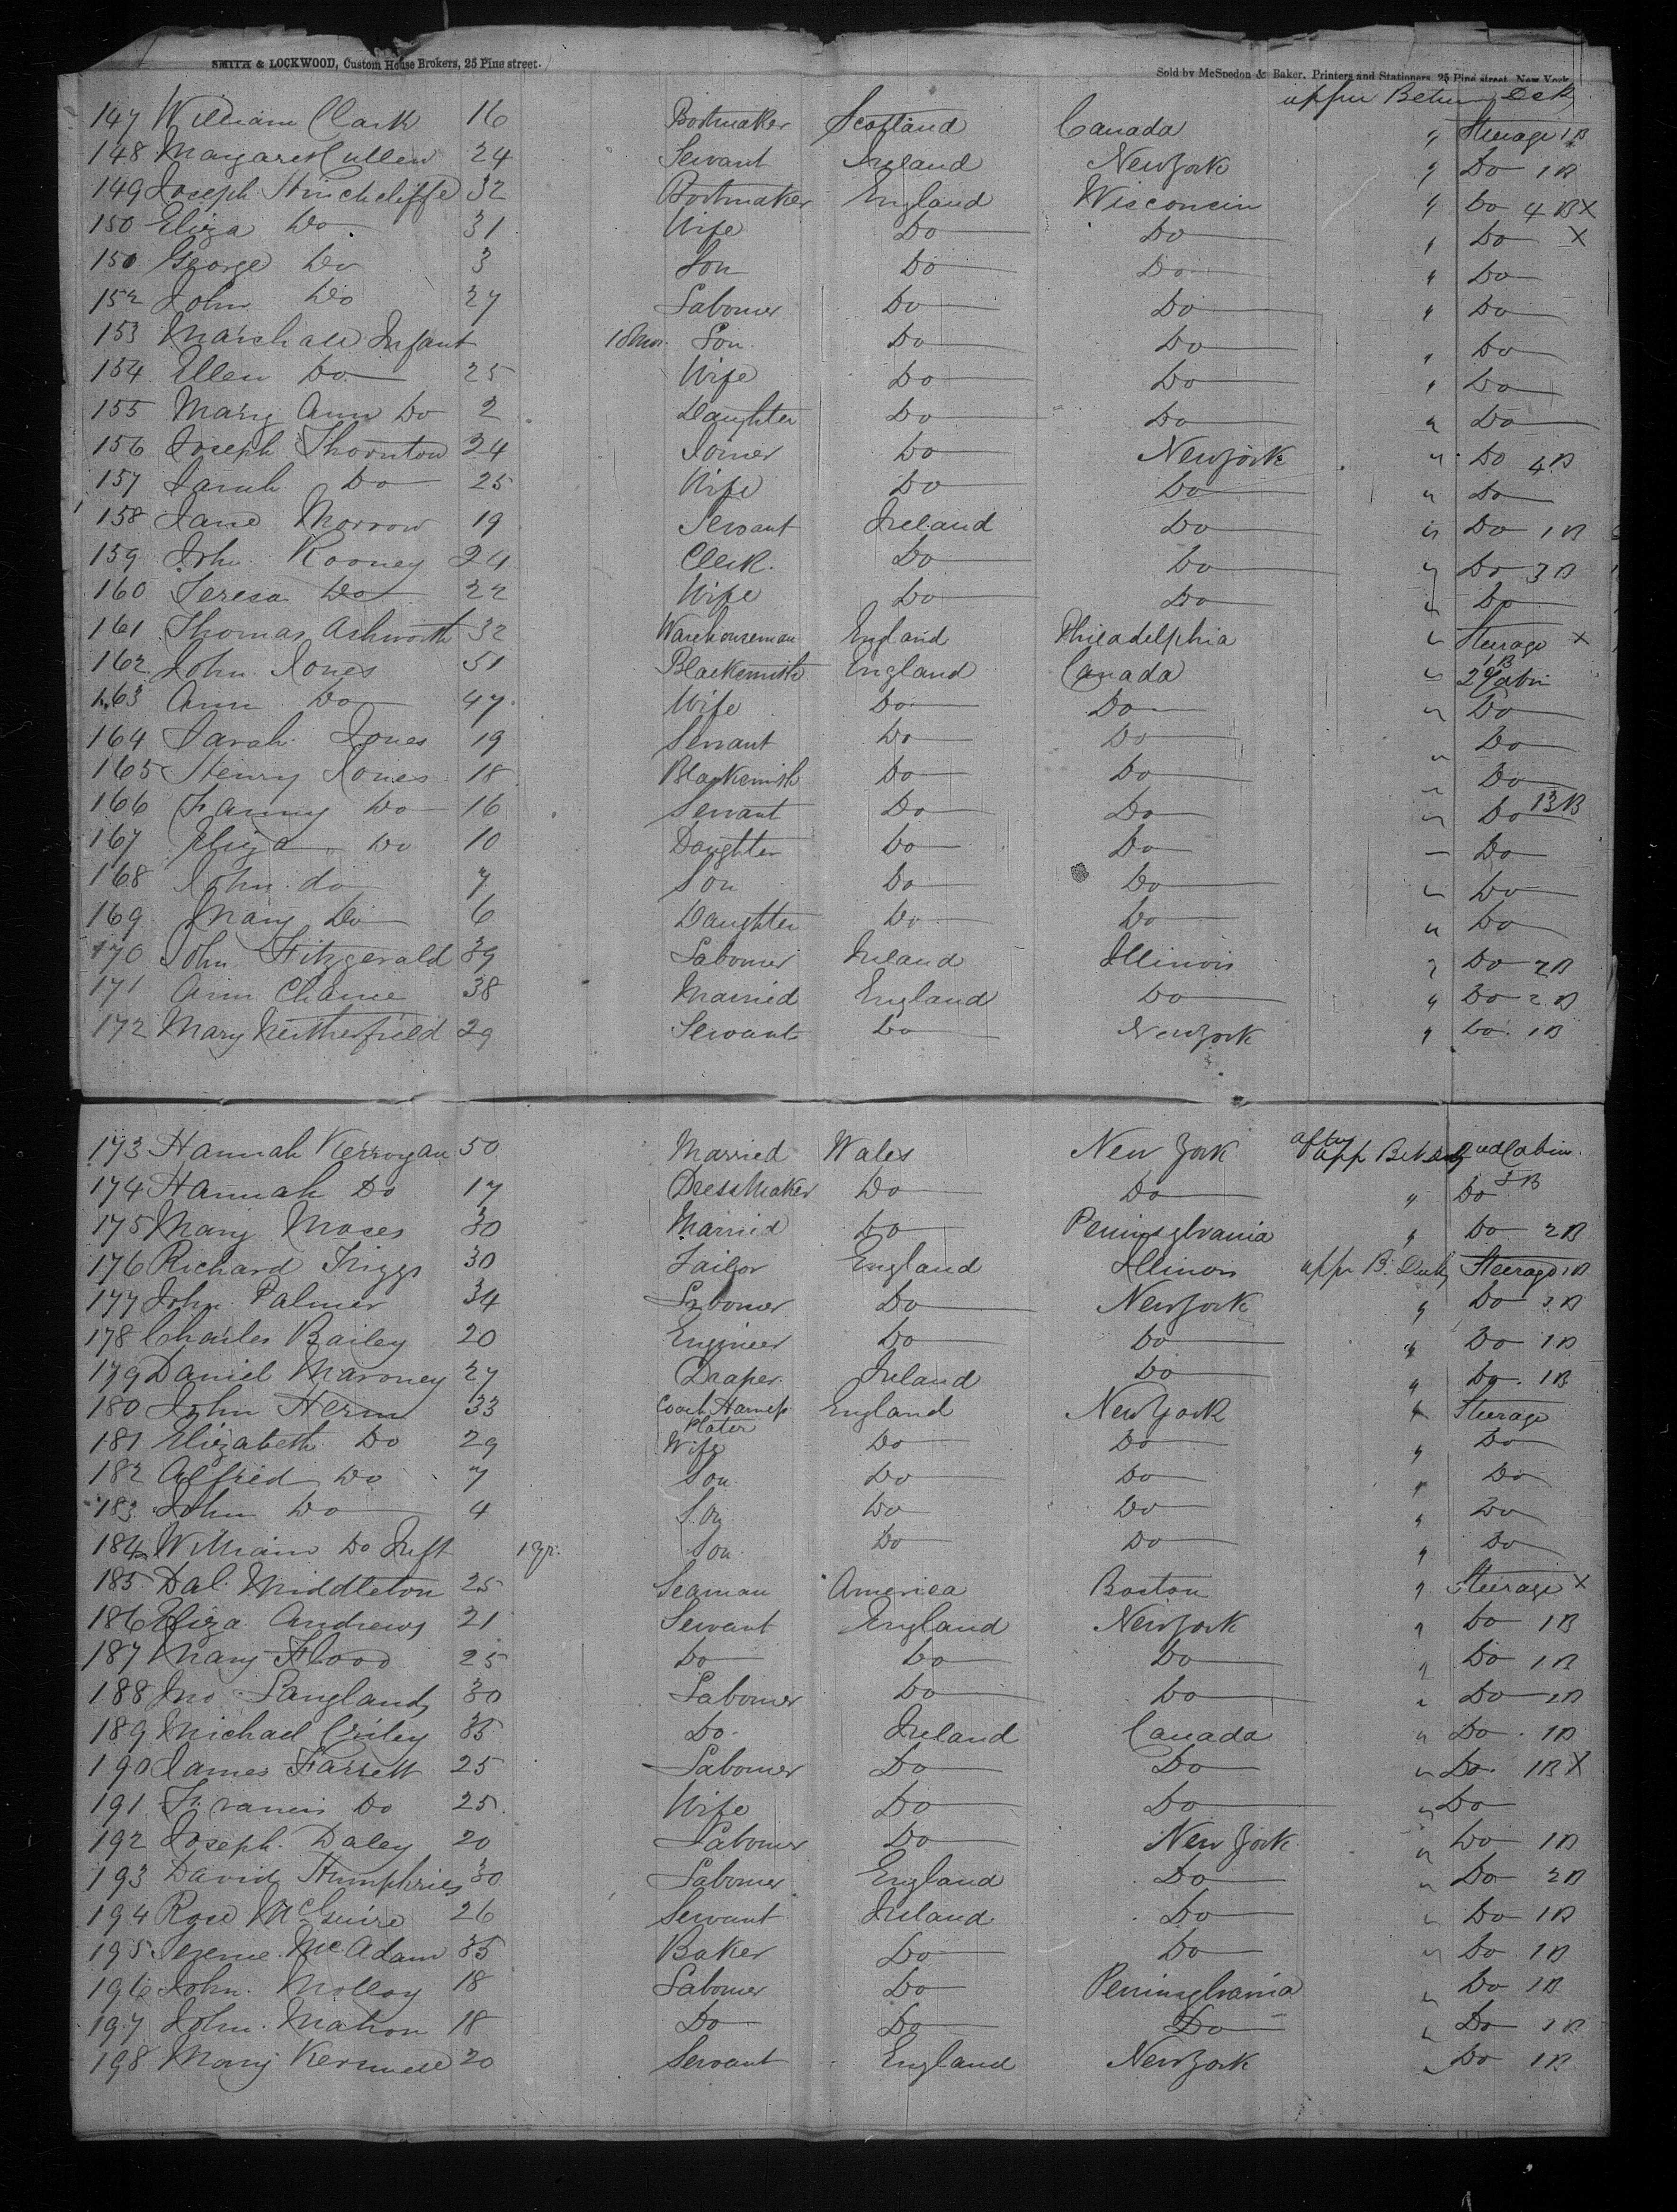 SMITH & LOCKWOOD, Custom House Brokers, 25 Pine street.
Sold by McSpedon & Baker, Printers and Stationers, 25 Pine street, New York
upper Between Deck
147 William Clark 16 Bootmaker Scotland Canada " Steerage 1B
148 Margaret Cullen 24 Servant Ireland New York " Do 1B
149 Joseph Hinchcliffe 32 Bootmaker England Wisconsin " Do 4B X
150 Eliza Do 31 Wife Do Do " Do X
150 George Do 3 Son Do Do " Do
152 John Do 27 Labourer Do Do " Do
153 Marshall Infant 18 mon. Son Do Do " Do
154 Ellen Do 25 Wife Do Do " Do
155 Mary Ann Do 2 Daughter Do Do " Do
156 Joseph Thornton 24 Joiner Do New York " Do 4B
157 Sarah Do 25 Wife Do Do " Do
158 Jane Morrow 19 Servant Ireland Do " Do 1B
159 John Rooney 24 Clerk Do Do " Do 3B
160 Teresa Do 22 Wife Do Do " Do
161 Thomas Ashworth 32 Warehouseman England Philadelphia " Steerage X
1B
162 John Jones 51 Blacksmith England Canada " 2d Cabin
163 Ann Do 47 Wife Do Do " Do
164 Sarah Jones 19 Servant Do Do " Do
165 Henry Jones 18 Blacksmith Do Do " Do
166 Fanny Do 16 Servant Do Do " Do 13B
167 Eliza Do 10 Daughter Do Do " Do
168 John do 7 Son Do Do " Do
169 Mary Do 6 Daughter Do Do " Do
170 John Fitzgerald 39 Labourer Ireland Illinois " Do 2B
171 Ann Chaine 38 Married England Do " Do 2B
172 Mary Neitherfield 29 Servant Do New York " Do 1B
173 Hannah Kerroyan 50 Married Wales New York after upp Bet 2nd Cabin
174 Hannah Do 17 DressMaker Do Do " Do 3B
175 Mary Moses 30 Married Do Penninsylvania " Do 2B
176 Richard Triggs 30 Tailor England Illinois upper B. Deck Steerage 1B
177 John Palmer 34 Labourer Do New York " Do 2B
178 Charles Bailey 20 Engineer Do Do " Do 1B
179 Daniel Maroney 27 Draper Ireland Do " Do 1B
180 John Herm 33 Coach Harness England New York " Steerage
Plater
181 Elizabeth Do 29 Wife Do Do " Do
182 Alfred Do 7 Son Do Do " Do
183 John Do 4 Son Do Do " Do
184 William Do Inft 1 yr. Son Do Do " Do
185 Dal. Middleton 25 Seaman America Boston " Steerage X
186 Eliza Andrews 21 Servant England New York " Do 1B
187 Mary Flood 25 Do Do Do " Do 1B
188 Jno Langlands 30 Labourer Do Do " Do 1B
189 Michael Criley 35 Do Ireland Canada " Do 1B
190 James Farrett 25 Labourer Do Do " Do 1B X
191 Francis Do 25 Wife Do Do " Do
192 Joseph Daley 20 Labourer Do New York " Do 1B
193 David Humphries 30 Labourer England Do " Do 2B
194 Rose McGuire 26 Servant Ireland Do " Do 1B
195 McAdam 35 Baker Do Do " Do 1B
196 John Molloy 18 Labourer Do Penninsylvania " Do 1B
197 John Mahon 18 Do Do Do " Do 1B
198 Mary 20 Servant England New York " Do 1B